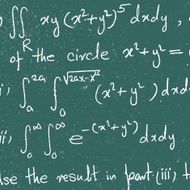 ∬_R xy (x²+y²)⁵ dxdy ,
of the circle x²+y² =
∫_a^{2a} ∫_0^{√(2ax-x²)} (x²+y²) dxd
ii) ∫_0^∞ ∫_0^∞ e^{-(x²+y²)} dxdy
se the result in part (iii) t